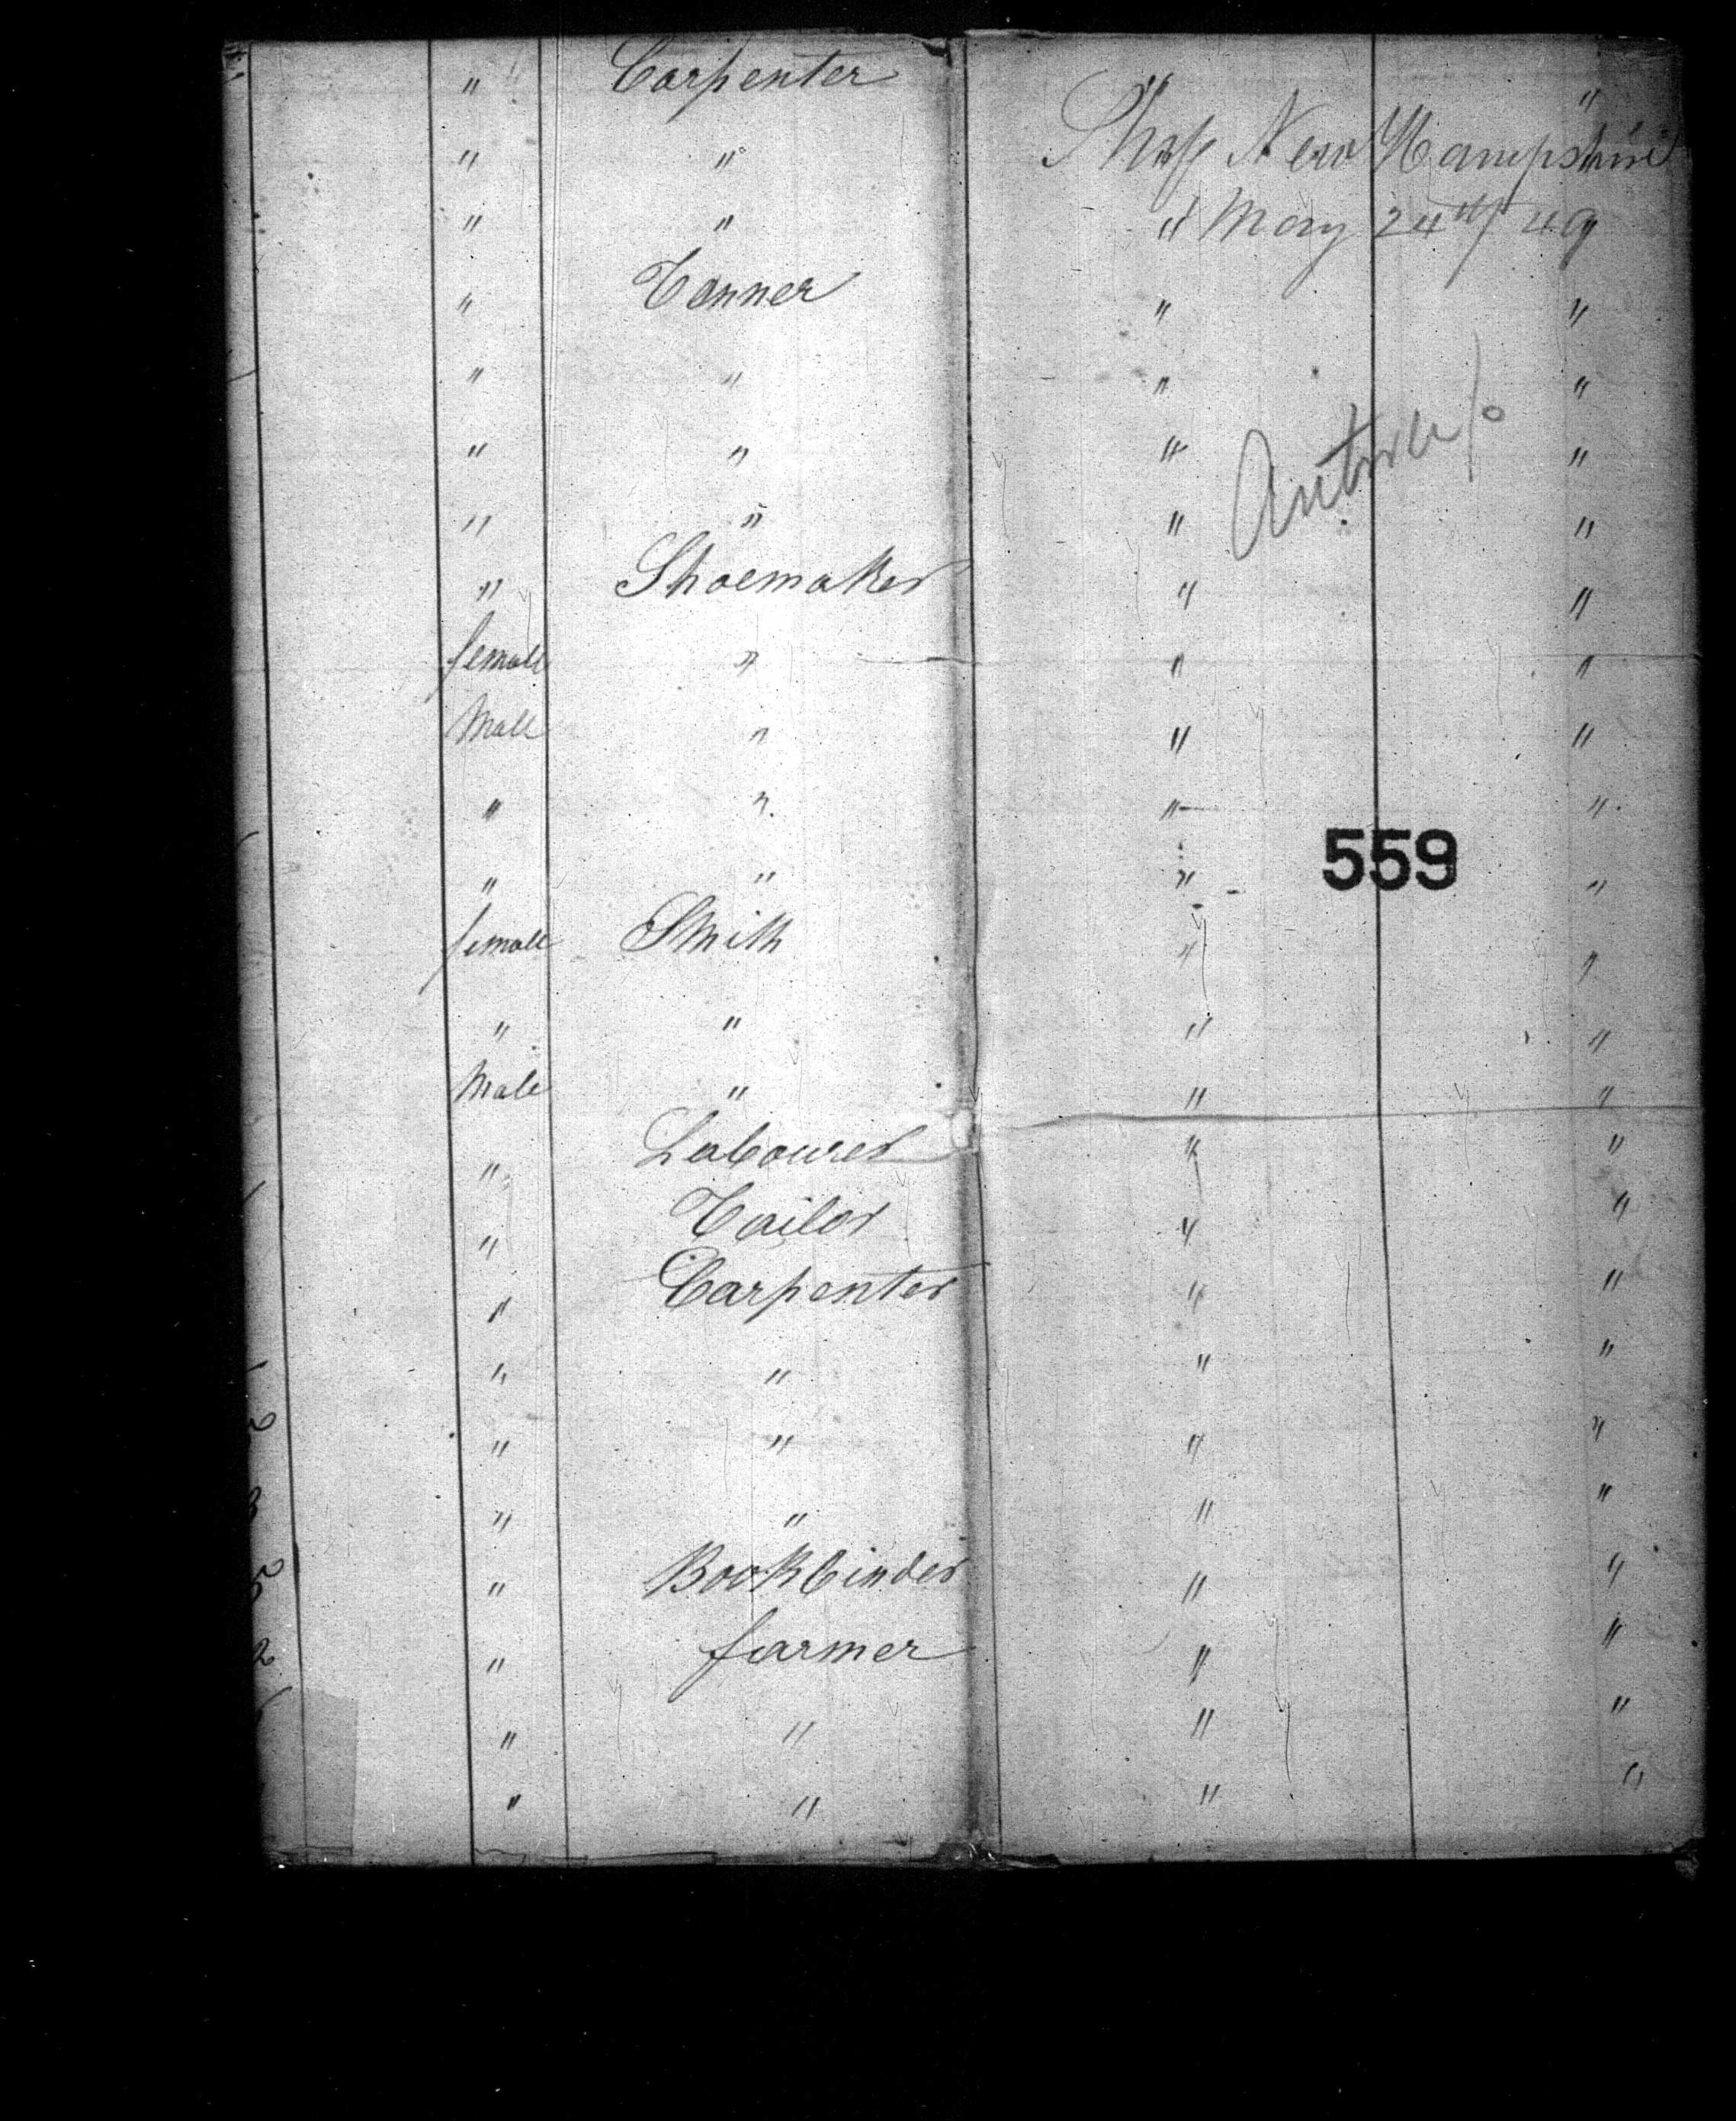 " Carpenter " "
Ship New Hampshire
" " " "
" " " May 24th/49 "
" Tanner " "
" " " "
" " " "
Antwerp
" " " "
" Shoemaker " "
female " " "
Male " " "
" " " "
559
" " " "
female Smith " "
" " " "
Male " " "
" Labourer " "
" Tailor " "
" Carpenter " "
" " " "
2 " " " "
" " " "
" Bookbinder " "
2 " farmer " "
" " " "
" " " "